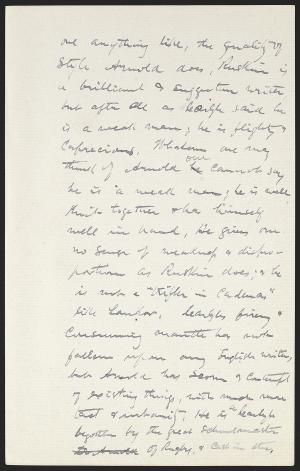 one anything like, the quality of
style Arnold does, Ruskin is
a brilliant & suggestive writer
but after all as said he
is a weak man; he is flighty &
capricious. Whatever one may
think of Arnold one cannot say
he is a weak man; he is well
knit together & has himself
well in hand, He gives one
no sense of weakness & dispro-
portion as Ruskin does; & he
is not a "Trifler in
like Landor. Carlyles fiery &
consuming mantle has not
fallen upon any English writer,
but Arnold has scorn & contempt
of existing things, with much more
tact & urbanity. He is "Carlyle
begotten by the great Schoolmaster
of Rugby, & cast in the